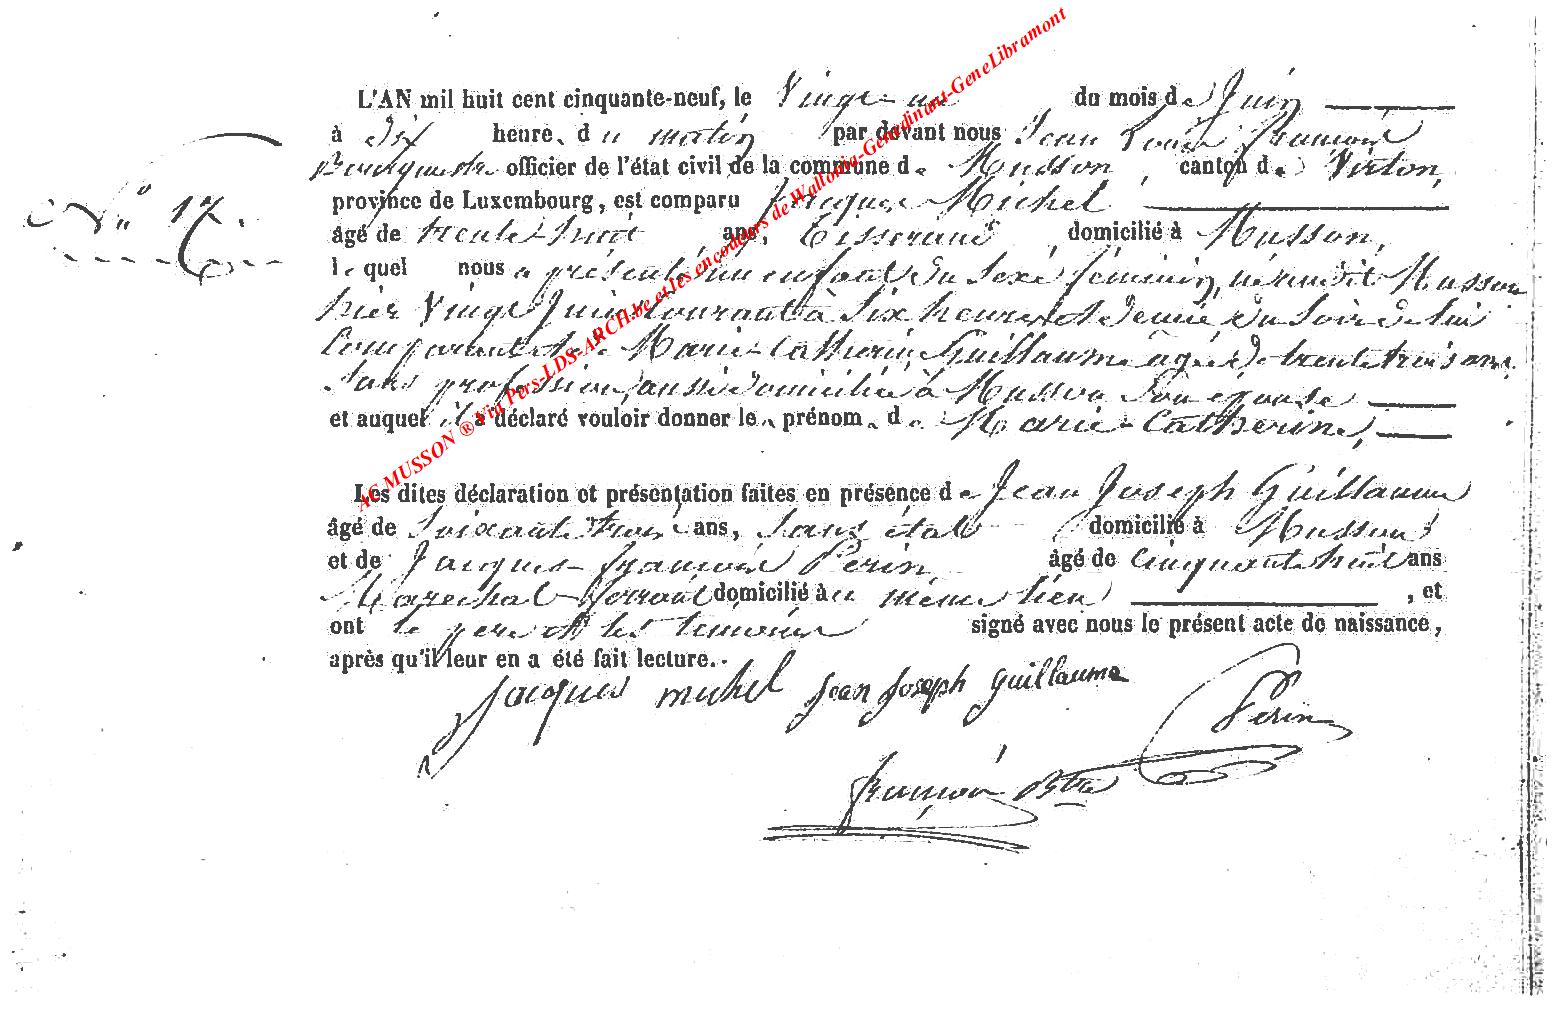 N° 17.
L'AN mil huit cent cinquante-neuf, le Vingt-un du mois de Juin
à dix heure, du matin par devant nous Jean Louis François
Bourgmestre officier de l'état civil de la commune de Musson, canton de Virton,
province de Luxembourg, est comparu Jacques Michel
âgé de trente-huit ans, Tisserand, domicilié à Musson,
lequel nous a présenté un enfant du sexe féminin, né audit Musson
hier Vingt Juin courant à six heures et demie du soir de lui
Comparant et de Marie-Catherine Guillaume âgée de trente trois ans,
sans profession, aussi domiciliée à Musson son épouse
et auquel il a déclaré vouloir donner les prénoms de Marie-Catherine,
Les dites déclaration et présentation faites en présence de Jean Joseph Guillaume
âgé de soixante trois ans, sans état domicilié à Musson
et de Jacques-François Perin, âgé de cinquante huit ans
Maréchal-ferrant domicilié au même lieu, et
ont le père et les témoins signé avec nous le présent acte de naissance,
après qu'il leur en a été fait lecture.
Jacques michel Jean Joseph Guillaume
Perin
François Btre
AC MUSSON ® Via Pers-LDS-ARCH.be et les encodeurs de Wallonia-Genedinant-GeneLibramont